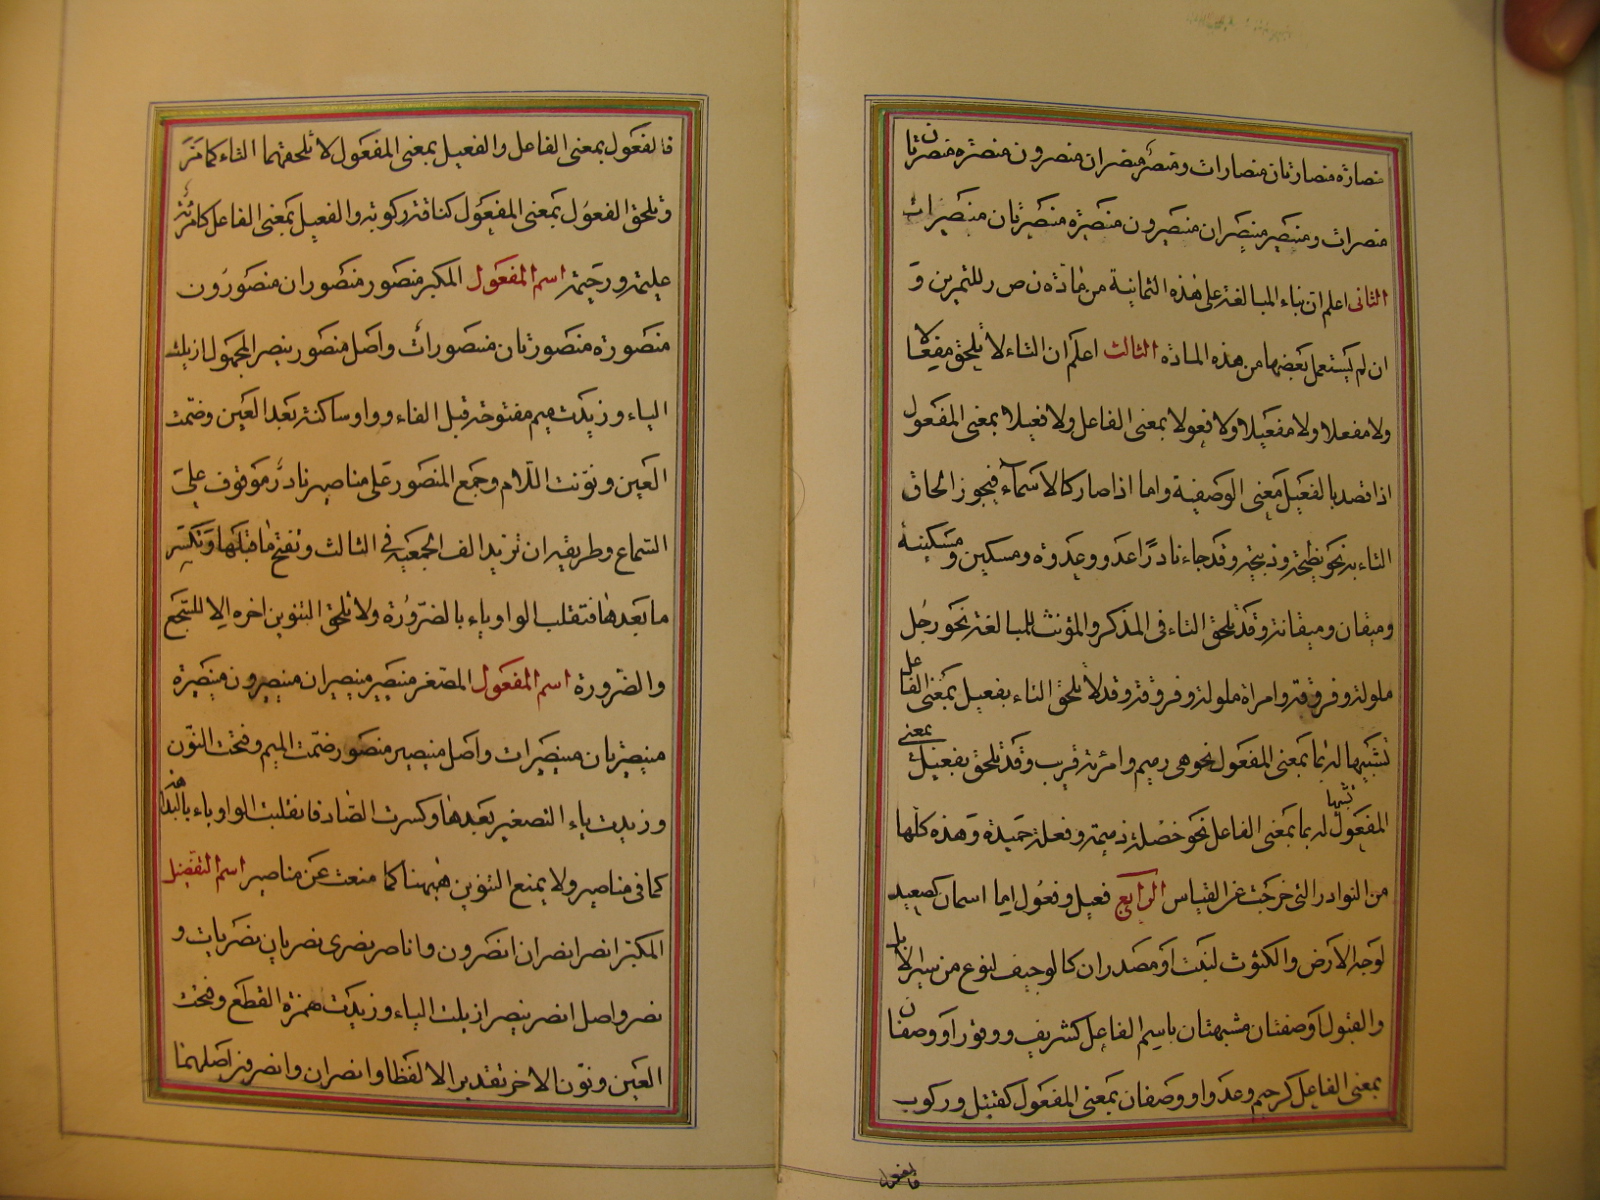 منصارة منصارتان منصارات ومنصر منصران منصرون منصرة منصرتان
منصرات ومنيصر منيصران منيصرون منيصرة منيصرتان منيصرات
الثانى اعلم ان بناء المبالغة على هذه الثمانية من مادة ن ص ر للتمرين و
ان لم يستعمل بعضها من هذه المادة الثالث اعلم ان التاء لا يلحق مفعالا
ولا مفعلا ولا مفعيلا ولا فعولا بمعنى الفاعل ولا فعيلا بمعنى المفعول
اذا قصد بالفعيل معنى الوصفية واما اذا صار كالاسماء فيجوز الحاق
التاء به نحو نطيحة وذبيحة وقد جاء نادرا عدو وعدوة ومسكين ومسكينة
وميقان وميقانة وقد يلحق التاء فى المذكر والمؤنث للمبالغة نحو رجل
ملولة وفروقة وامراة ملولة وفروقة وقد لا يلحق التاء بفعيل بمعنى الفاعل
تشبيها له بما بمعنى المفعول نحو هى رميم وامرئة قريب وقد يلحق بفعيل بمعنى
المفعول تشبيها له بما بمعنى الفاعل نحو خصلة ذميمة وفعلة حميدة وهذه كلها
من النوادر التى خرجت عن القياس الرابع فعيل وفعول اما اسمان كصعيد
لوجه الارض والكثوث لنبت او مصدران كالوجيف لنوع من سير الابل
والقبول او صفتان مشبهتان باسم الفاعل كشريف ووقور او وصفان
بمعنى الفاعل كرحيم وعدو او وصفان بمعنى المفعول كقتيل وركوب
فالفعول
فالفعول بمعنى الفاعل والفعيل بمعنى المفعول لا تلحقهما التاء كما مر
وتلحق الفعول بمعنى المفعول كناقة ركوبة والفعيل بمعنى الفاعل كامرئة
عليمة ورحيمة اسم المفعول المكبر منصور منصوران منصورون
منصورة منصورتان منصورات واصل منصور ينصر المجهول ازيلت
الياء وزيدت ميم مفتوحة قبل الفاء وواو ساكنة بعد العين وضمت
العين ونونت اللام وجمع المنصور على مناصير نادر موقوف على
السماع وطريقه ان تزيد الف الجمعية فى الثالث وتفتح ما قبلها وتكسر
ما بعدها فتقلب الواو ياء بالضرورة ولا تلحق التنوين اخره الا للسجع
والضرورة اسم المفعول المصغر منيصير منيصيران منيصيرون منيصيرة
منيصيرتان منيصيرات واصل منيصير منصور ضمت الميم وفتحت النون
وزيدت ياء التصغير بعدها وكسرت الصاد فانقلبت الواو ياء بالبداهة
كما فى مناصير ولا يمنع التنوين هيهنا كما منعت عن مناصير اسم التفضيل
المكبر انصر انصران انصرون واناصر نصرى نصريان نصريات و
نصر واصل انصر ينصر ازيلت الياء وزيدت همزة القطع وفتحت
العين ونون الاخر تقديرا لا لفظا وانصران وانصرون اصلهما